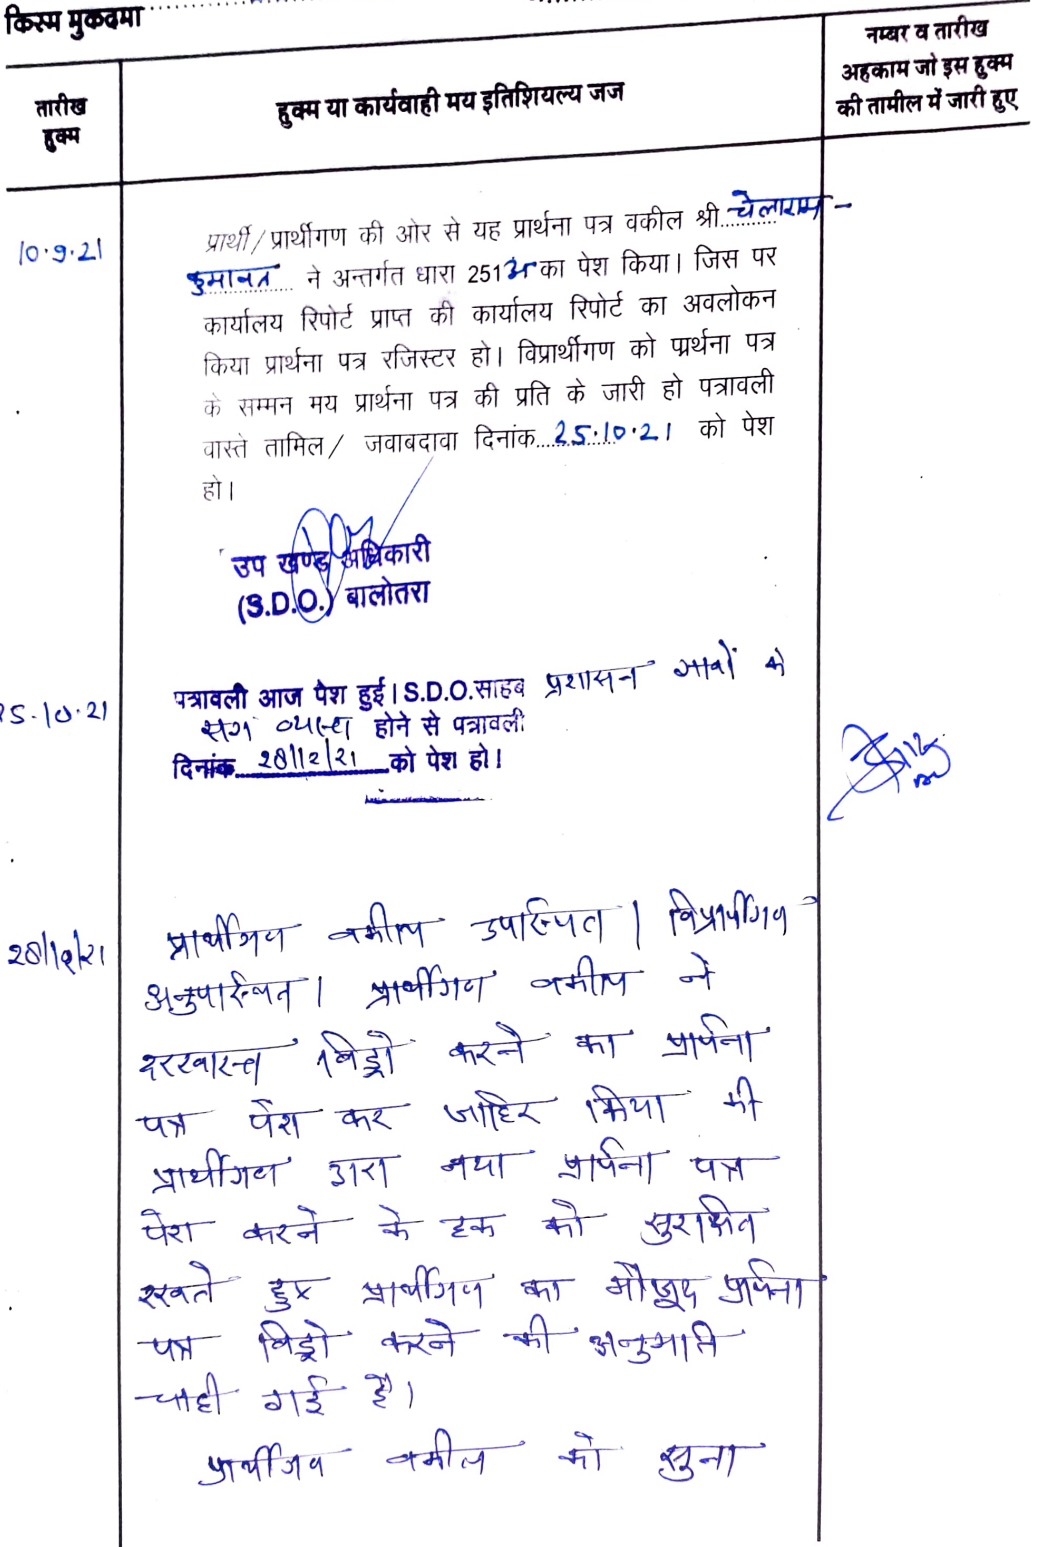 किस्म मुकदमा
तारीख
हुक्म
हुक्म या कार्यवाही मय इतिशियल्य जज
नम्बर व तारीख
अहकाम जो इस हुक्म
की तामील में जारी हुए
10.9.21
प्रार्थी/प्रार्थीगण की ओर से यह प्रार्थना पत्र वकील श्री चेलाराम
कुमावत ने अन्तर्गत धारा 251अ का पेश किया। जिस पर
कार्यालय रिपोर्ट प्राप्त की कार्यालय रिपोर्ट का अवलोकन
किया प्रार्थना पत्र रजिस्टर हो। विप्रार्थीगण को प्रार्थना पत्र
के सम्मन मय प्रार्थना पत्र की प्रति के जारी हो पत्रावली
वास्ते तामिल/ जवाबदावा दिनांक 25.10.21 को पेश
हो।
उप खण्ड अधिकारी
(S.D.O.) बालोतरा
25.10.21
पत्रावली आज पेश हुई। S.D.O.साहब प्रशासन गावों के
संग व्यस्त होने से पत्रावली
दिनांक 28/12/21 को पेश हो।
28/12/21
प्रार्थीगण वकील उपस्थित। विप्रार्थीगण
अनुपस्थित। प्रार्थीगण वकील ने
दरखास्त विड्रो करने का प्रार्थना
पत्र पेश कर जाहिर किया की
प्रार्थीगण द्वारा नया प्रार्थना पत्र
पेश करने के हक को सुरक्षित
रखते हुए प्रार्थीगण का मौजूद प्रार्थना
पत्र विड्रो करने की अनुमति
चाही गई है।
प्रार्थीगण वकील को सुना